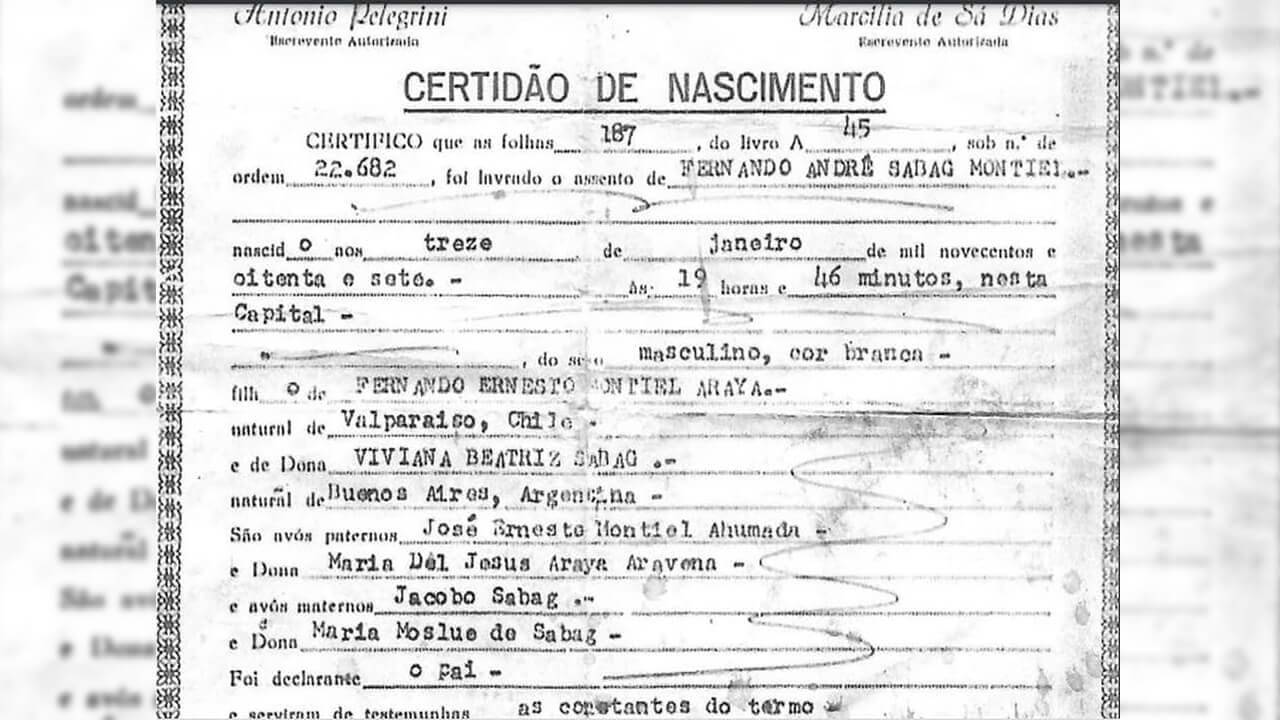 Antonio Pelegrini Marcilia de Sá Dias
Escrevente Autorizada Escrevente Autorizada
CERTIDÃO DE NASCIMENTO
CERTIFICO que as folhas 187, do livro A 45, sob n.º de
ordem 22.682, foi lavrado o assento de FERNANDO ANDRÊ SABAG MONTIEL.-
nascid o aos treze de janeiro de mil novecentos e
oitenta e sete. - às 19 horas e 46 minutos, nesta
Capital -
, do sexo masculino, cor branca -
filh o de FERNANDO ERNESTO MONTIEL ARAYA.-
natural de Valparaiso, Chile -
e de Dona VIVIANA BEATRIZ SABAG .-
natural de Buenos Aires, Argentina -
São avós paternos José Ernesto Montiel Ahumada -
e Dona Maria Del Jesus Araya Aravena -
e avós maternos Jacobo Sabag .-
e Dona Maria Moslue de Sabag -
Foi declarante o pai -
e serviram de testemunhas as constantes do termo -